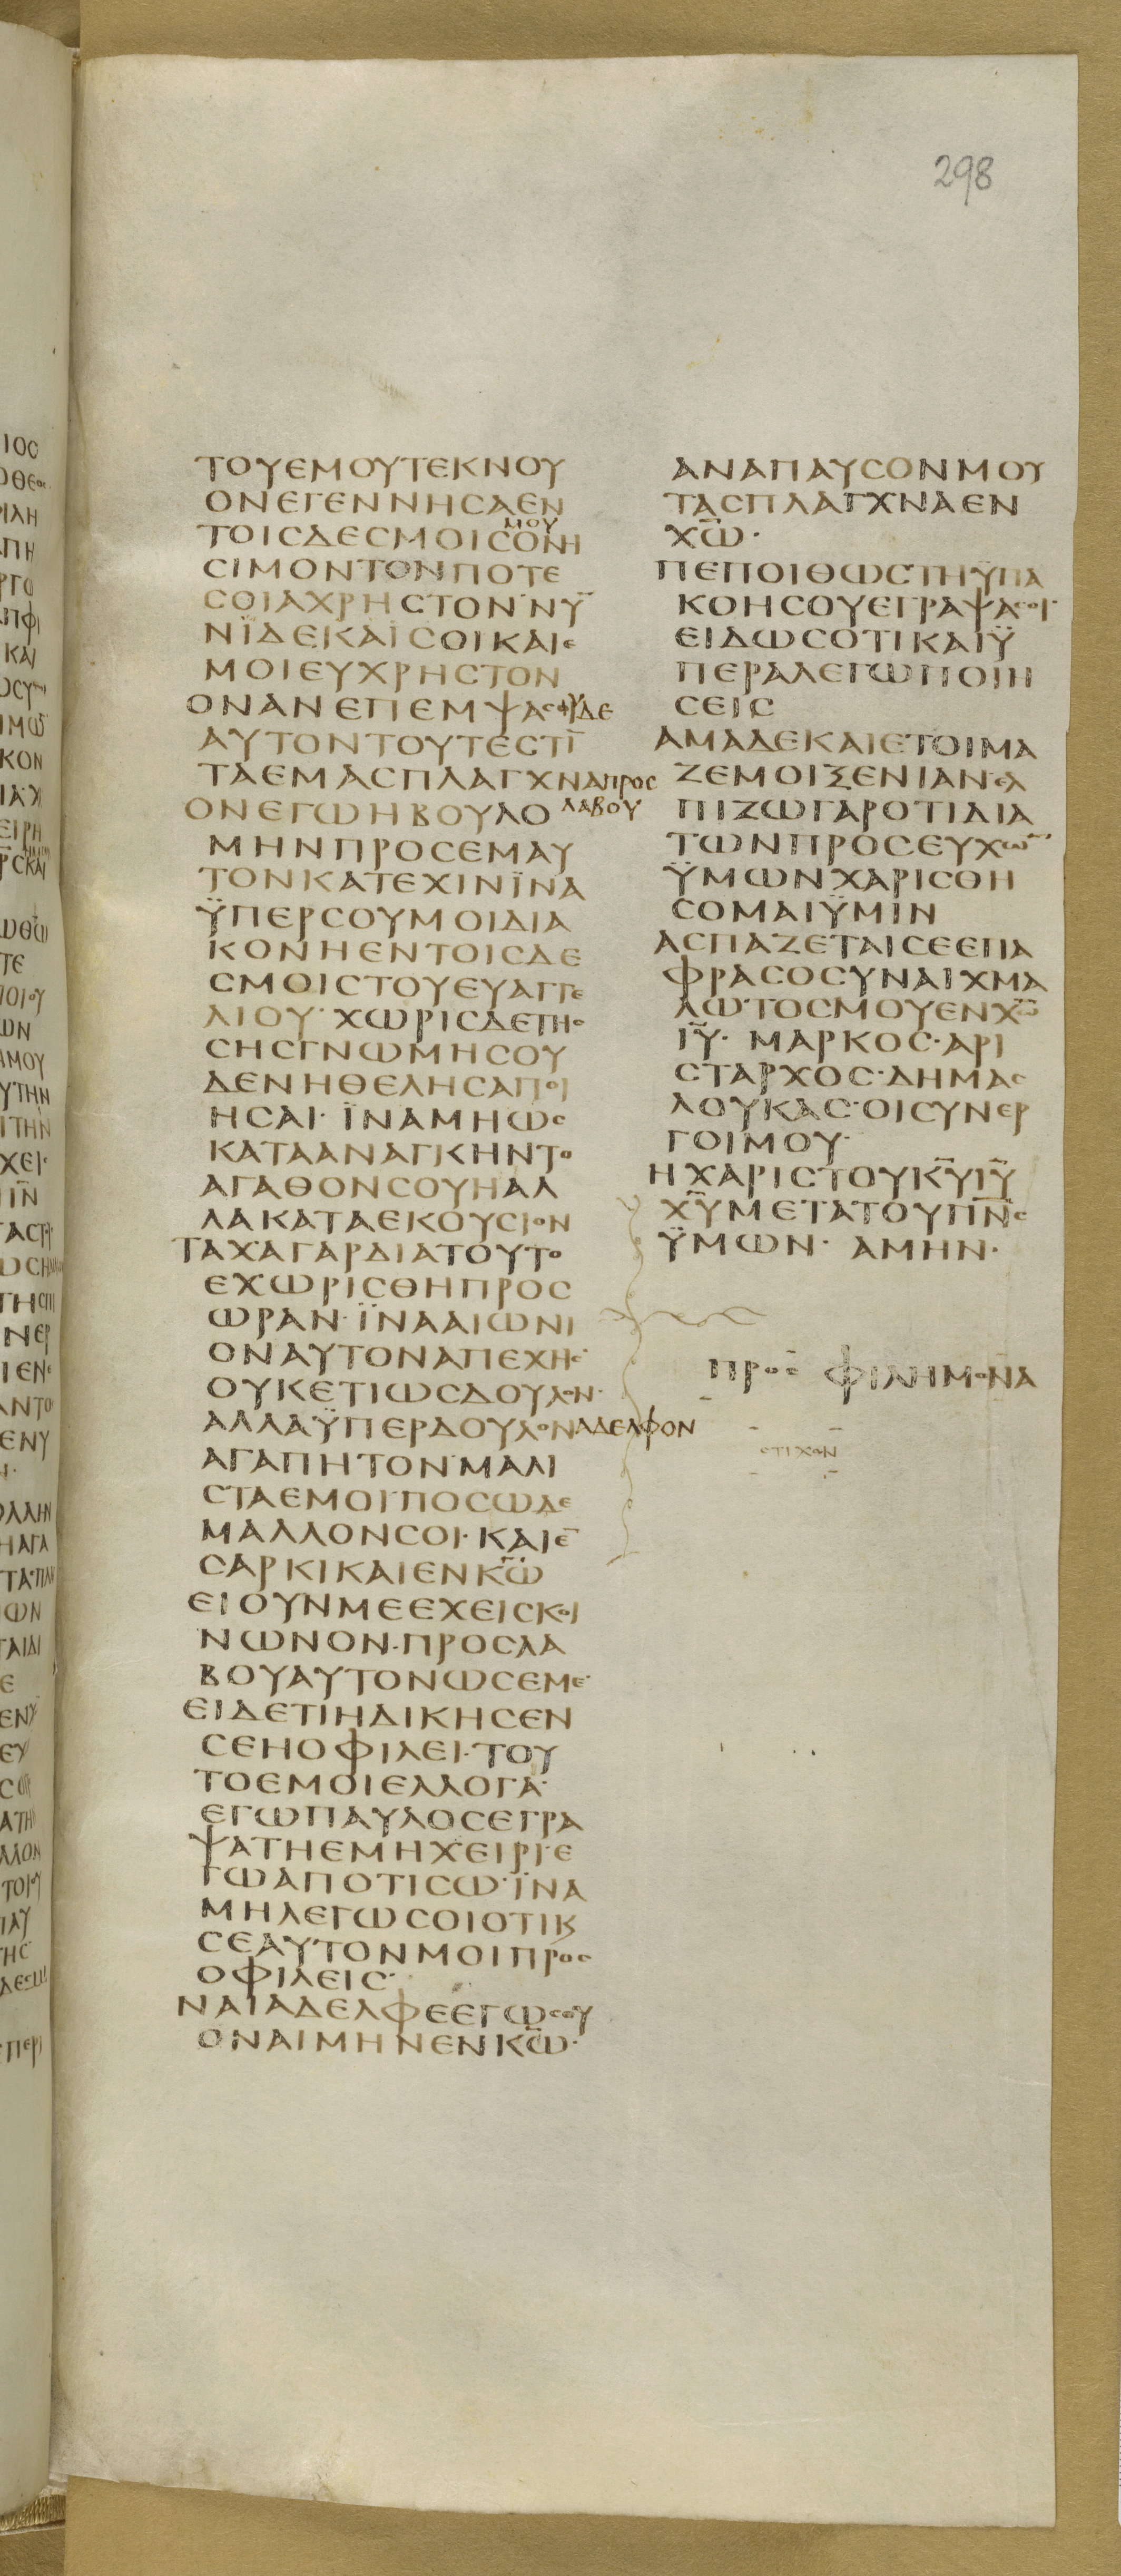 298
ΤΟΥΕΜΟΥΤΕΚΝΟΥ
ΟΝΕΓΕΝΝΗϹΑΕΝ
ΜΟΥ
ΤΟΙϹΔΕϹΜΟΙϹΟΝΗ
ϹΙΜΟΝΤΟΝΠΟΤΕ
ϹΟΙΑΧΡΗϹΤΟΝ·ΝΥ̅
ΝΪΔΕΚΑΙϹΟΙΚΑΙΕ
ΜΟΙΕΥΧΡΗϹΤΟΝ
ΟΝΑΝΕΠΕΜΨΑϹΟΙϹΥΔΕ
ΑΥΤΟΝΤΟΥΤΕϹΤΙ̅
ΤΑΕΜΑϹΠΛΑΓΧΝΑΠΡΟϹ
ΛΑΒΟΥ
ΟΝΕΓΩΗΒΟΥΛΟ
ΜΗΝΠΡΟϹΕΜΑΥ
ΤΟΝΚΑΤΕΧΙΝΪΝΑ
ΫΠΕΡϹΟΥΜΟΙΔΙΑ
ΚΟΝΗΕΝΤΟΙϹΔΕ
ϹΜΟΙϹΤΟΥΕΥΑΓΓΕ
ΛΙΟΥ· ΧΩΡΙϹΔΕΤΗϹ
ϹΗϹΓΝΩΜΗϹΟΥ
ΔΕΝΗΘΕΛΗϹΑΠΟΙ
ΗϹΑΙ· ΪΝΑΜΗΩϹ
ΚΑΤΑΑΝΑΓΚΗΝΤΟ
ΑΓΑΘΟΝϹΟΥΗΑΛ
ΛΑΚΑΤΑΕΚΟΥϹΙΟΝ
ΤΑΧΑΓΑΡΔΙΑΤΟΥΤΟ
ΕΧΩΡΙϹΘΗΠΡΟϹ
ΩΡΑΝ·ΪΝΑΑΙΩΝΙ
ΟΝΑΥΤΟΝΑΠΕΧΗϹ·
ΟΥΚΕΤΙΩϹΔΟΥΛΟΝ·
ΑΛΛΑΫΠΕΡΔΟΥΛΟΝΑΔΕΛΦΟΝ
ΑΓΑΠΗΤΟΝ·ΜΑΛΙ
ϹΤΑΕΜΟΙ·ΠΟϹΩΔΕ
ΜΑΛΛΟΝϹΟΙ·ΚΑΙΕ̅
ϹΑΡΚΙΚΑΙΕΝΚ̅Ω̅
ΕΙΟΥΝΜΕΕΧΕΙϹΚΟΙ
ΝΩΝΟΝ·ΠΡΟϹΛΑ
ΒΟΥΑΥΤΟΝΩϹΕΜΕ·
ΕΙΔΕΤΙΗΔΙΚΗϹΕΝ
ϹΕΗΟΦΙΛΕΙ·ΤΟΥ
ΤΟΕΜΟΙΕΛΛΟΓΑ·
ΕΓΩΠΑΥΛΟϹΕΓΡΑ
ΨΑΤΗΕΜΗΧΕΙΡΙ·Ε
ΓΩΑΠΟΤΙϹΩ·ΪΝΑ
ΜΗΛΕΓΩϹΟΙΟΤΙΚ
ϹΕΑΥΤΟΝΜΟΙΠΡΟϹ
ΟΦΙΛΕΙϹ·
ΝΑΙΑΔΕΛΦΕΕΓΩϹΟΥ
ΟΝΑΙΜΗΝΕΝΚ̅Ω̅·
ΑΝΑΠΑΥϹΟΝΜΟΥ
ΤΑϹΠΛΑΓΧΝΑΕΝ
Χ̅Ω̅·
ΠΕΠΟΙΘΩϹΤΗΫΠΑ
ΚΟΗϹΟΥΕΓΡΑΨΑϹΟΙ·
ΕΙΔΩϹΟΤΙΚΑΙΫ
ΠΕΡΑΛΕΓΩΠΟΙΗ
ϹΕΙϹ
ΑΜΑΔΕΚΑΙΕΤΟΙΜΑ
ΖΕΜΟΙΞΕΝΙΑΝ·ΕΛ
ΠΙΖΩΓΑΡΟΤΙΔΙΑ
ΤΩΝΠΡΟϹΕΥΧΩ̅
ΫΜΩΝΧΑΡΙϹΘΗ
ϹΟΜΑΙΫΜΙΝ
ΑϹΠΑΖΕΤΑΙϹΕΕΠΑ
ΦΡΑϹΟϹΥΝΑΙΧΜΑ
ΛΩΤΟϹΜΟΥΕΝΧ̅Ω̅
Ι̅Υ̅· ΜΑΡΚΟϹ·ΑΡΙ
ϹΤΑΡΧΟϹ·ΔΗΜΑϹ
ΛΟΥΚΑϹ·ΟΙϹΥΝΕΡ
ΓΟΙΜΟΥ·
ΗΧΑΡΙϹΤΟΥΚ̅Υ̅Ι̅Υ̅
Χ̅Υ̅ΜΕΤΑΤΟΥΠ̅Ν̅Ϲ̅
ΫΜΩΝ· ΑΜΗΝ·
ΠΡΟϹ ΦΙΛΗΜΟΝΑ
ϹΤΙΧΩΝ